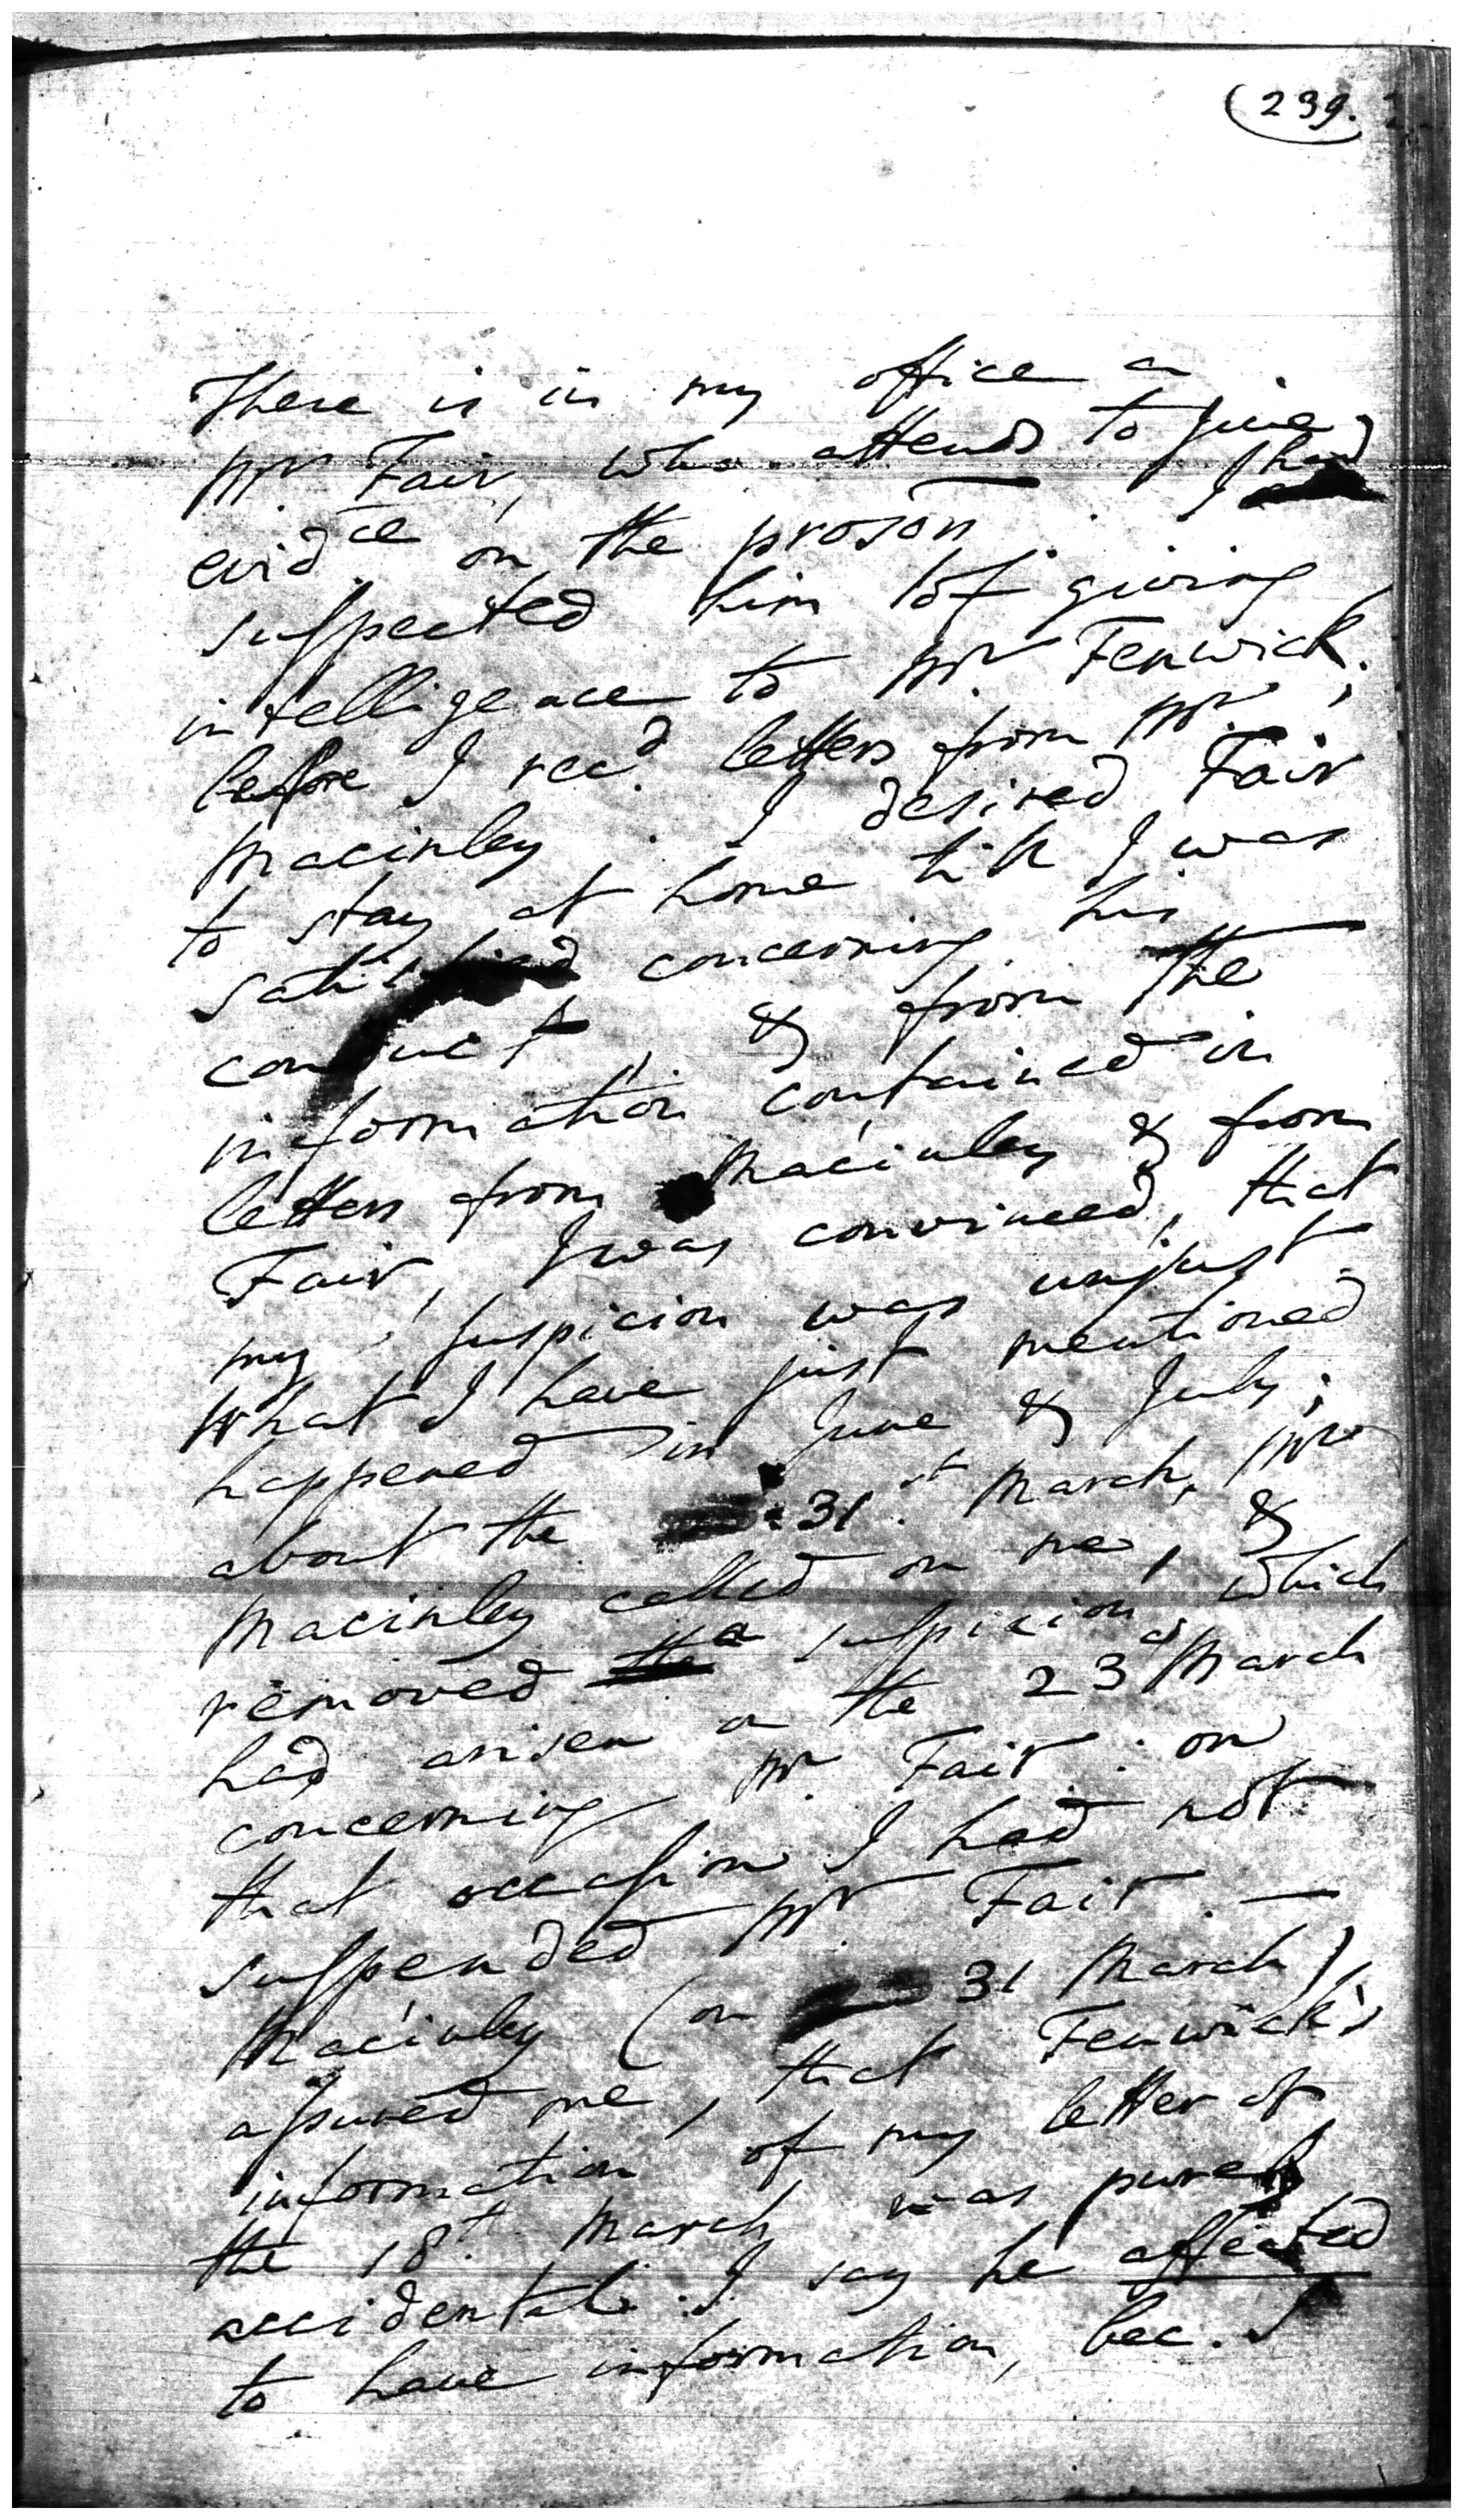 (239.
There is in my office a
Mr Fair, who attends to give
evidce on the proson. I had
suspected him of giving
intelligence to Mr Fenwick;
before I recd letters from Mr
Macinley. I desired Fair
to stay at home till I was
satisfied concerning his
conduct, & from the
information contained in
letters from Macinley & from
Fair, I was convinced, that
my suspicion was unjust.
What I have just mentioned
happened in June & July;
about the 31st March, Mr
Macinley called on me, &
removed the a suspicion, which
had arisen on the 23d March
concerning Mr Fair: on
that occasion I had not
suspended Mr Fair. —
Macinley (on 31 March)
assured me, that Fenwick's
information of my letter of
the 18th March was purely
accidental. I say he affected
to have information, bec. I